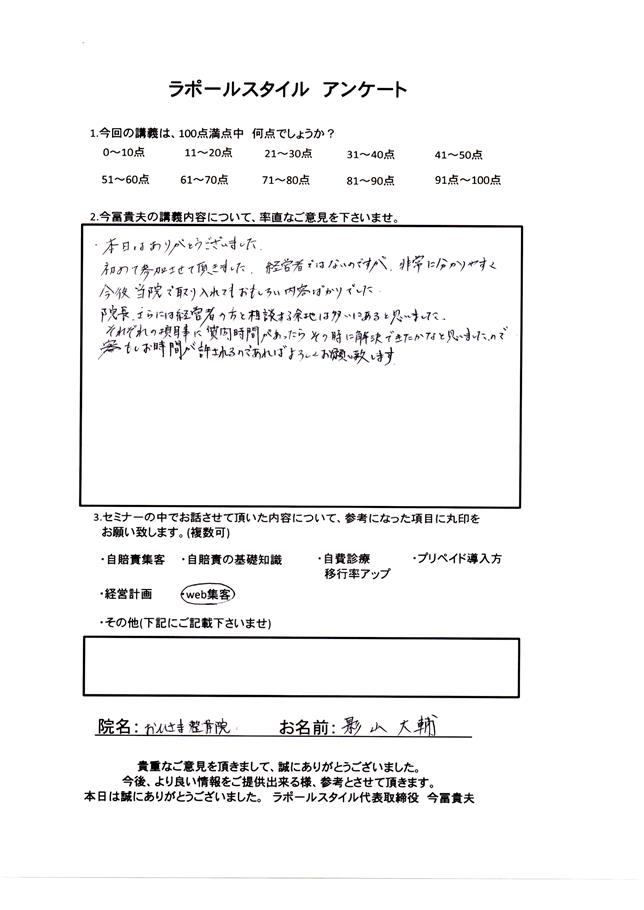 ラポールスタイル アンケート
1.今回の講義は、100点満点中 何点でしょうか？
0～10点 11～20点 21～30点 31～40点 41～50点
51～60点 61～70点 71～80点 81～90点 91点～100点
2.今冨貴夫の講義内容について、率直なご意見を下さいませ。
・本日はありがとうございました。
初めて参加させて頂きました。経営者ではないのですが、非常に分かりやすく
今後当院で取り入れてもおもしろい内容ばかりでした。
院長、さらには経営者の方と相談する余地は多いにあると思いました。
それぞれの項目事に質問時間があったらその時に解決できたかなと思いましたので
もしお時間が許されるのであればよろしくお願い致します
3.セミナーの中でお話させて頂いた内容について、参考になった項目に丸印を
お願い致します。(複数可)
・自賠責集客 ・自賠責の基礎知識 ・自費診療 ・プリペイド導入方
移行率アップ
・経営計画 ・web集客
・その他(下記にご記載下さいませ)
院名: おひさま整骨院 お名前: 影山 大輔
貴重なご意見を頂きまして、誠にありがとうございました。
今後、より良い情報をご提供出来る様、参考とさせて頂きます。
本日は誠にありがとうございました。 ラポールスタイル代表取締役 今冨貴夫